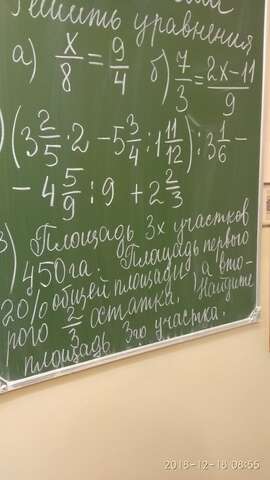 Решить уравнения
а) x/8 = 9/4 б) 7/3 = 2x-11/9
) (3 2/5 · 2 - 5 3/4 : 1 11/12) : 3 1/6 -
- 4 5/9 : 9 + 2 2/3
3) Площадь 3х участков
450га. Площадь первого
20% общей площади, а вто-
рого 2/3 остатка. Найдите
площадь 3го участка.
2018-12-18 08:55